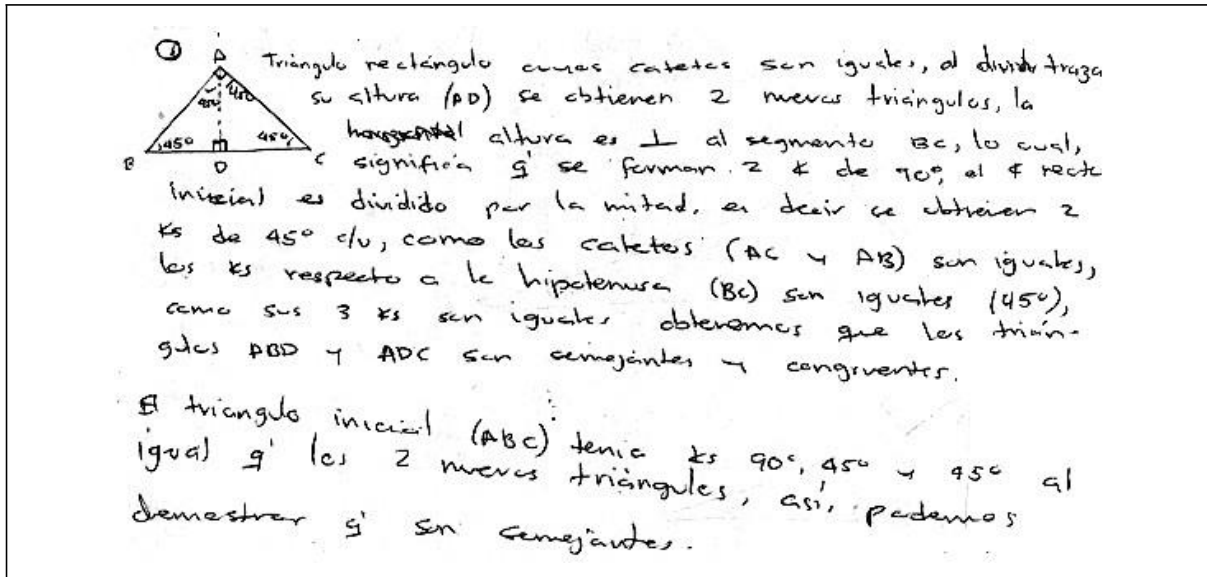 ①
A
45° 45°
45° 45°
B D C
Triángulo rectángulo cuyos catetos son iguales, al dividir traza
su altura (AD) se obtienen 2 nuevos triángulos, la
altura es ⊥ al segmento BC, lo cual,
significa q' se forman 2 ∡ de 90°, el ∡ recto
inicial es dividido por la mitad, es decir se obtienen 2
∡s de 45° c/u, como los catetos (AC y AB) son iguales,
los ∡s respecto a la hipotenusa (BC) son iguales (45°),
como sus 3 ∡s son iguales obtenemos que los trián-
gulos ABD y ADC son semejantes y congruentes.
El triangulo inicial (ABC) tenia ∡s 90°, 45° y 45° al
igual q' los 2 nuevos triángulos, así, podemos
demostrar q' son semejantes.